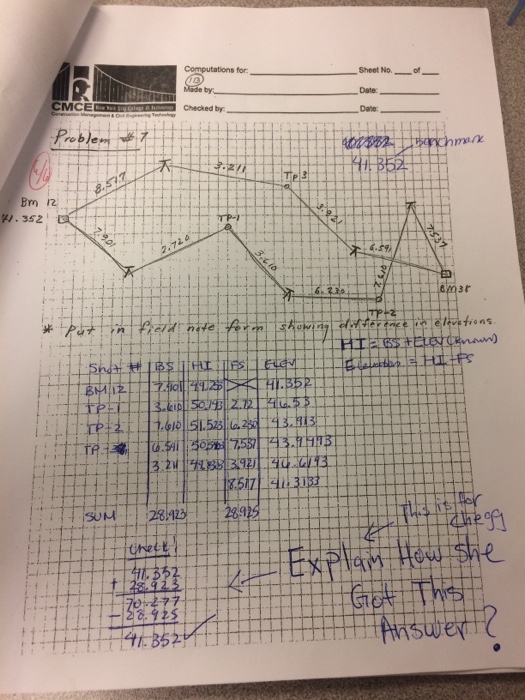 Computations for:
Sheet No. of
Made by:
Date:
Checked by:
Date:
CMCE
New York City College of Technology
Construction Management & Civil Engineering Technology
Problem # 7
benchmark
41.352
8.517
3.211
TP 3
Bm 12
41.352
7.901
2.720
TP-1
3.921
6.591
7.537
3.610
6.230
BM 38
TP-2
* Put in field note form showing difference in elevations.
HI = BS + ELEV (known)
Elevation = HI - FS
Shot # BS HI FS ELEV
BM 12 7.901 49.25 41.352
TP-1 3.610 50.143 2.72 46.53
TP-2 7.610 51.523 6.230 43.913
TP-3 6.591 7.537
3.211 3.921
8.517 41.3133
SUM 28.923 28.925
Check!
41.352
+ 28.923
70.277
- 28.925
41.352 ✓
This is for
Chegg
Explain How She
Got This
Answer?